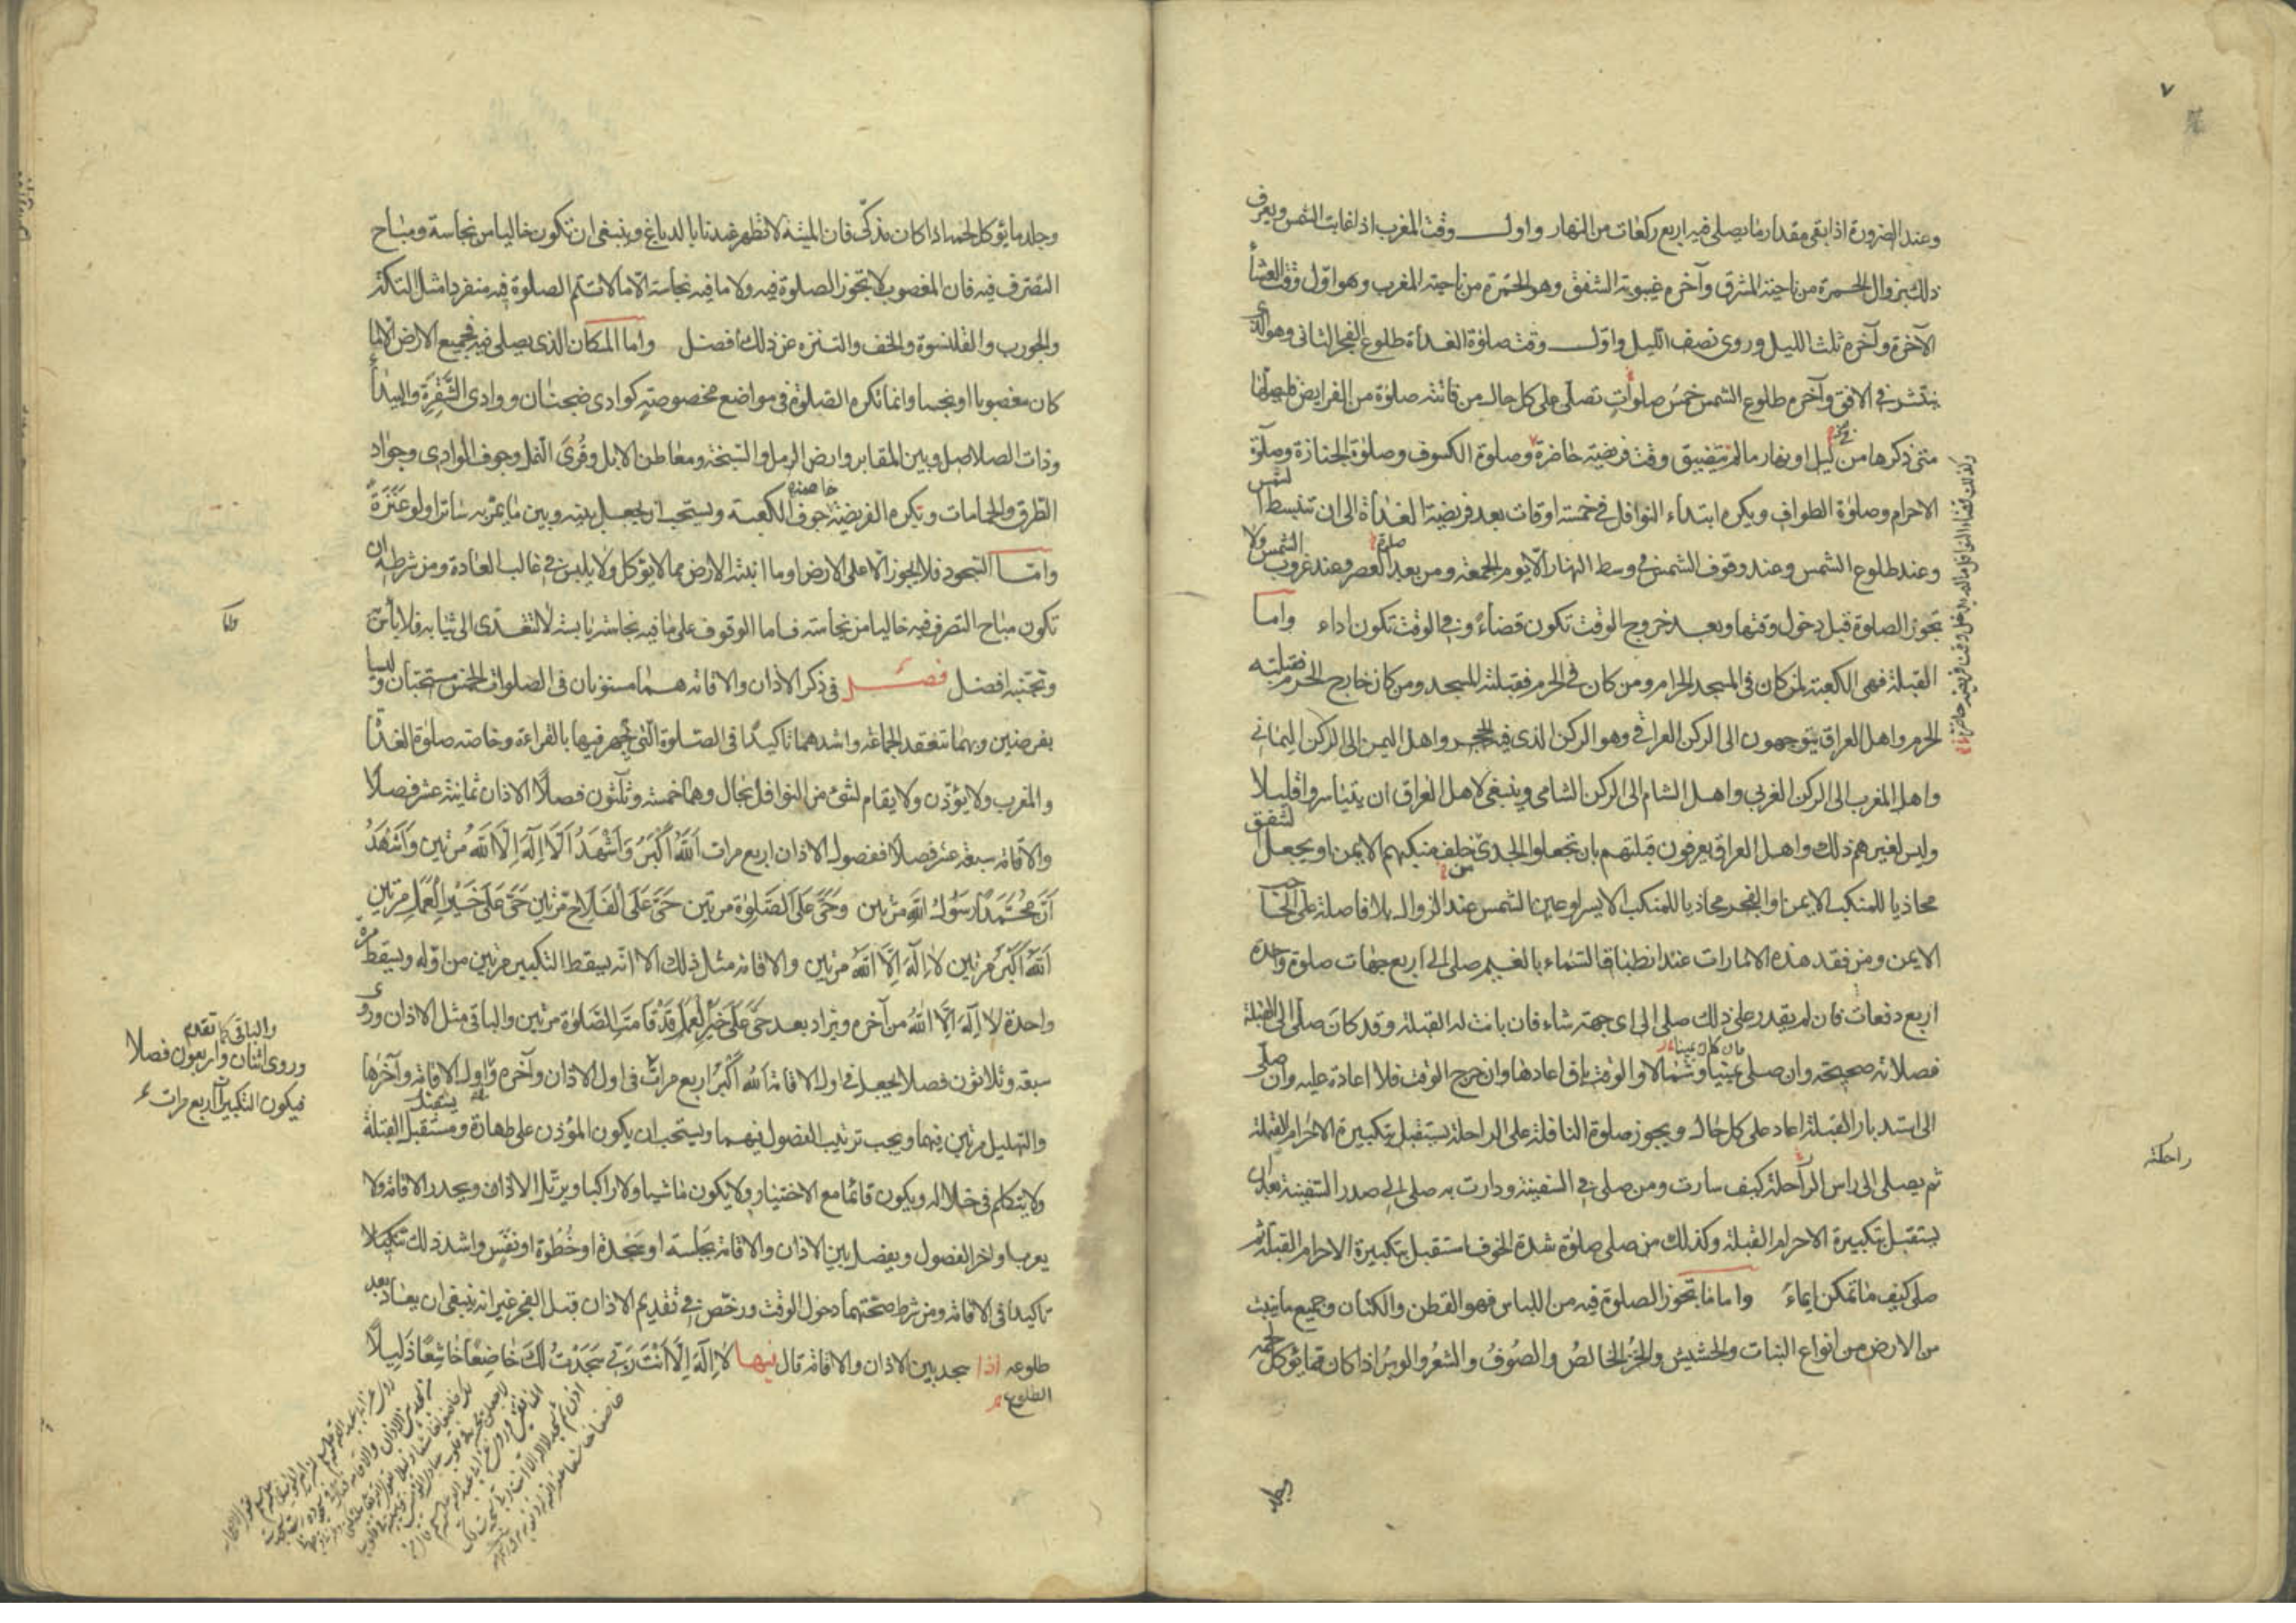 ٧
وعند الضرورة اذا بقى مقدار ما يصلى فيه اربع ركعات من النهار واول وقت المغرب اذا غابت الشمس ويعرف
ذلك بزوال الحمرة من ناحية المشرق وآخره غيبوبة الشفق وهو الحمرة من ناحية المغرب وهو اوّل وقت العشاء
الآخرة وآخره ثلث الليل وروى نصف الليل واوّل وقت صلوة الغداة طلوع الفجر الثانى وهو الذى
ينتشر فى الافق وآخره طلوع الشمس خمس صلوات تصلى على كل حال من فاتته صلوة من الفرايض فليصلها
متى ذكرها من ليل او نهار ما لم يتضيق وقت فريضة حاضرة وصلوة الكسوف وصلوة الجنازة وصلوة
الاحرام وصلوة الطواف ويكره ابتداء النوافل فى خمسة اوقات بعد فريضة الغداة الى ان تنبسط الشمس
وعند طلوع الشمس وعند وقوف الشمس فى وسط النهار الّا يوم الجمعة ومن بعد صلوة العصر وعند غروب الشمس ولا
تجوز الصلوة قبل دخول وقتها وبعد خروج الوقت تكون قضاء وفى الوقت تكون اداء واما
القبلة فهى الكعبة لمن كان فى المسجد الحرام ومن كان فى الحرم فقبلته المسجد ومن كان خارج الحرم فقبلته
الحرم واهل العراق يتوجهون الى الركن العراقى وهو الركن الذى فيه الحجر واهل اليمن الى الركن اليمانى
واهل المغرب الى الركن الغربى واهل الشام الى الركن الشامى وينبغى لاهل العراق ان يتياسروا قليلا
وليس لغيرهم ذلك واهل العراق يعرفون قبلتهم بان تجعلوا الجدى خلف منكبهم الايمن او يجعل الشفق
محاذيا للمنكب الايمن والفجر محاذيا للمنكب الايسر او عين الشمس عند الزوال بلا فاصلة على الحاجب
الايمن ومن فقد هذه الامارات عند انطباق السماء بالغيم صلى الى اربع جهات صلوة واحدة
اربع دفعات فان لم يقدر على ذلك صلى الى اى جهة شاء فان بانت له القبلة وقد كان صلى الى القبلة
فصلاته صحيحة وان صلى يمينا وشمالا والوقت باق اعادها وان خرج الوقت فلا اعادة عليه وان صلى
الى استدبار القبلة اعاد على كل حال ويجوز صلوة النافلة على الراحلة يستقبل بتكبيرة الاحرام القبلة
ثم يصلى الى راس الراحلة كيف سارت ومن صلى فى السفينة ودارت به صلى الى صدر السفينة بعد ان
يستقبل بتكبيرة الاحرام القبلة وكذلك من صلى صلوة شدة الخوف استقبل بتكبيرة الاحرام القبلة ثم
صلى كيف ما تمكن ايماء واما ما تجوز الصلوة فيه من اللباس فهو القطن والكتان وجميع ما ينبت
من الارض من انواع النبات والحشيش والخز الخالص والصوف والشعر والوبر اذا كان مما يؤكل لحمه
وجلد
راحلته
وجلد ما يؤكل لحمه اذا كان مذكّى فان الميتة لا تطهر عندنا بالدباغ وينبغى ان تكون خاليا من نجاسة ومباح
التصرف فيه فان المغصوب لا تجوز الصلوة فيه ولا ما فيه نجاسة الّا ما لا تتم الصلوة فيه منفردا مثل التكة
والجورب والقلنسوة والخف والتنزه عن ذلك افضل واما المكان الذى يصلى فيه فجميع الارض الّا ما
كان مغصوبا او نجسا وانما تكره الصلوة فى مواضع مخصوصة كوادى ضجنان ووادى الشقرة والبيداء
وذات الصلاصل وبين المقابر وارض الرمل والسبخة ومعاطن الابل وقرى النمل وجوف الوادى وجواد
الطرق والحمامات وتكره الفريضة خاصة جوف الكعبة ويستحب ان يجعل بينه وبين ما يمر به ساترا ولو عنزة
وامّا السجود فلا يجوز الّا على الارض او ما انبتته الارض مما لا يؤكل ولا يلبس فى غالب العادة ومن شرطه ان
تكون مباح التصرف فيه خاليا من نجاسة فاما الوقوف على ما فيه نجاسة يابسة لا تتعدى الى ثيابه فلا بأس
وتجنبه افضل فصل فى ذكر الاذان والاقامة هما مسنونان فى الصلوات الخمس مستحبان وليسا
بفرضين وبهما تنعقد الجماعة واشدهما تاكيدا فى الصلوة التى يجهر فيها بالقراءة وخاصة صلوة الغداة
والمغرب ولا يؤذن ولا يقام لشئ من النوافل بحال وهما خمسة وثلثون فصلا الاذان ثمانية عشر فصلا
والاقامة سبعة عشر فصلا ففصول الاذان اربع مرات اَللهُ اَكْبَرُ وَاَشْهَدُ اَلَّا اِلٰهَ اِلَّا اللهُ مرتين وَاَشْهَدُ
اَنَّ مُحَمَّدًا رَسُولُ اللهِ مرتين وَحَىَّ عَلَى الصَّلٰوةِ مرتين حَىَّ عَلَى الفَلَاحِ مرتين حَىَّ عَلٰى خَيْرِ الْعَمَلِ مرتين
اَللهُ اَكْبَرُ مرتين لَا اِلٰهَ اِلَّا اللهُ مرتين والاقامة مثل ذلك الا انه يسقط التكبير مرتين من اوّله ويسقط مرة
واحدة لَا اِلٰهَ اِلَّا اللهُ من آخره ويزاد بعد حَىَّ عَلٰى خَيْرِ الْعَمَلِ قَدْ قَامَتِ الصَّلٰوةُ مرتين والباقى مثل الاذان وروى
سبعة وثلاثون فصلا يجعل فى اول الاقامة اَللهُ اَكْبَرُ اربع مرات فى اول الاذان وآخره واول الاقامة وآخرها
والتهليل مرتين فيهما ويجب ترتيب الفصول فيهما ويستحب ان يكون المؤذن على طهارة ومستقبل القبلة
ولا يتكلم فى خلاله ويكون قائما مع الاختيار ولا يكون ماشيا ولا راكبا ويرتل الاذان ويحدر الاقامة ولا
يعرب اواخر الفصول ويفصل بين الاذان والاقامة بجلسة او سجدة او خطوة او نفس واشد ذلك تاكيدا
تاكيدا فى الاقامة ومن شرط صحتهما دخول الوقت ورخص فى تقديم الاذان قبل الفجر غير انه ينبغى ان يعاد بعد
طلوعه اذا سجد بين الاذان والاقامة قال فيها لَا اِلٰهَ اِلَّا اَنْتَ رَبِّى سَجَدْتُ لَكَ خَاضِعًا خَاشِعًا ذَلِيلًا
الطلوع
والباقى كما تقدم
وروى اثنان واربعون فصلا
فيكون التكبير اربع مرات